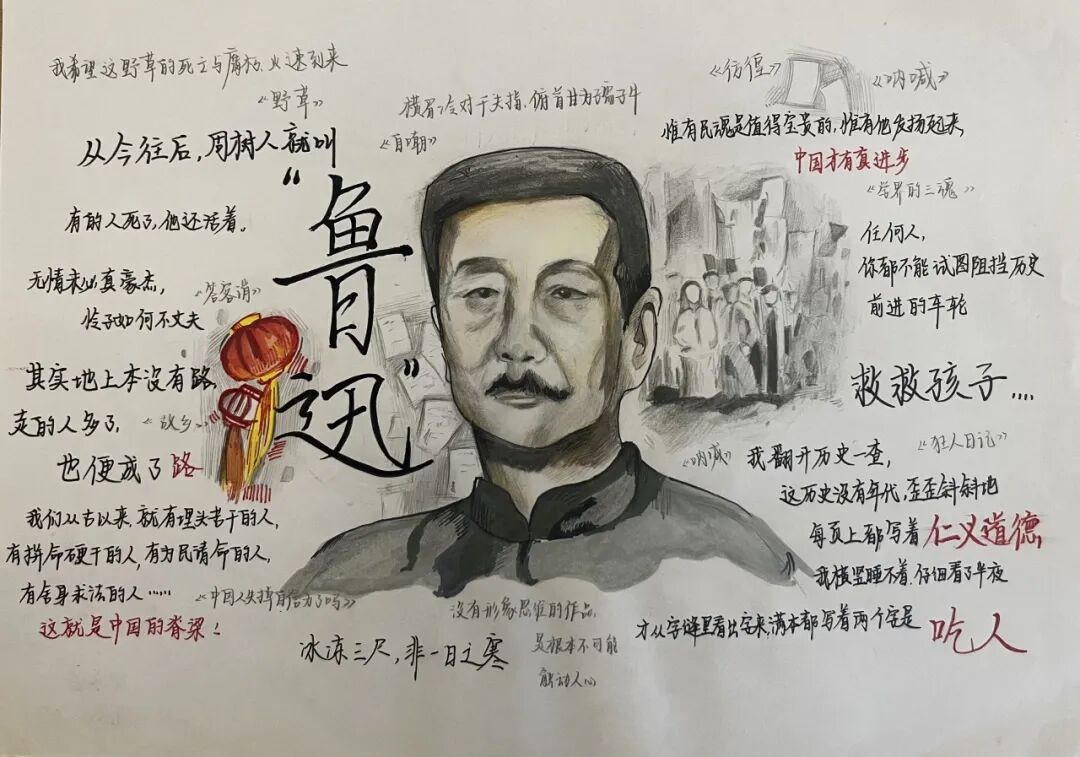 我希望这野草的死亡与腐朽、火速到来
《野草》
从今往后,周树人就叫
“鲁迅”
有的人死了,他还活着。
无情未必真豪杰,
《答客诮》
怜子如何不丈夫
其实地上本没有路,
走的人多了,
《故乡》
也便成了路
我们从古以来,就有埋头苦干的人,
有拼命硬干的人,有为民请命的人,
有舍身求法的人……
《中国人失掉自信力了吗》
这就是中国的脊梁!
横眉冷对千夫指,俯首甘为孺子牛
《自嘲》
冰冻三尺,非一日之寒
没有形象思维的作品,
是根本不可能
触动人心
《彷徨》
《呐喊》
惟有民魂是值得宝贵的,惟有他发扬起来,
中国才有真进步
《学界的三魂》
任何人,
你都不能试图阻挡历史
前进的车轮
救救孩子....
《狂人日记》
《呐喊》
我翻开历史一查,
这历史没有年代,歪歪斜斜地
每页上都写着仁义道德,
我横竖睡不着,仔细看了半夜
才从字缝里看出字来,满本都写着两个字是
吃人